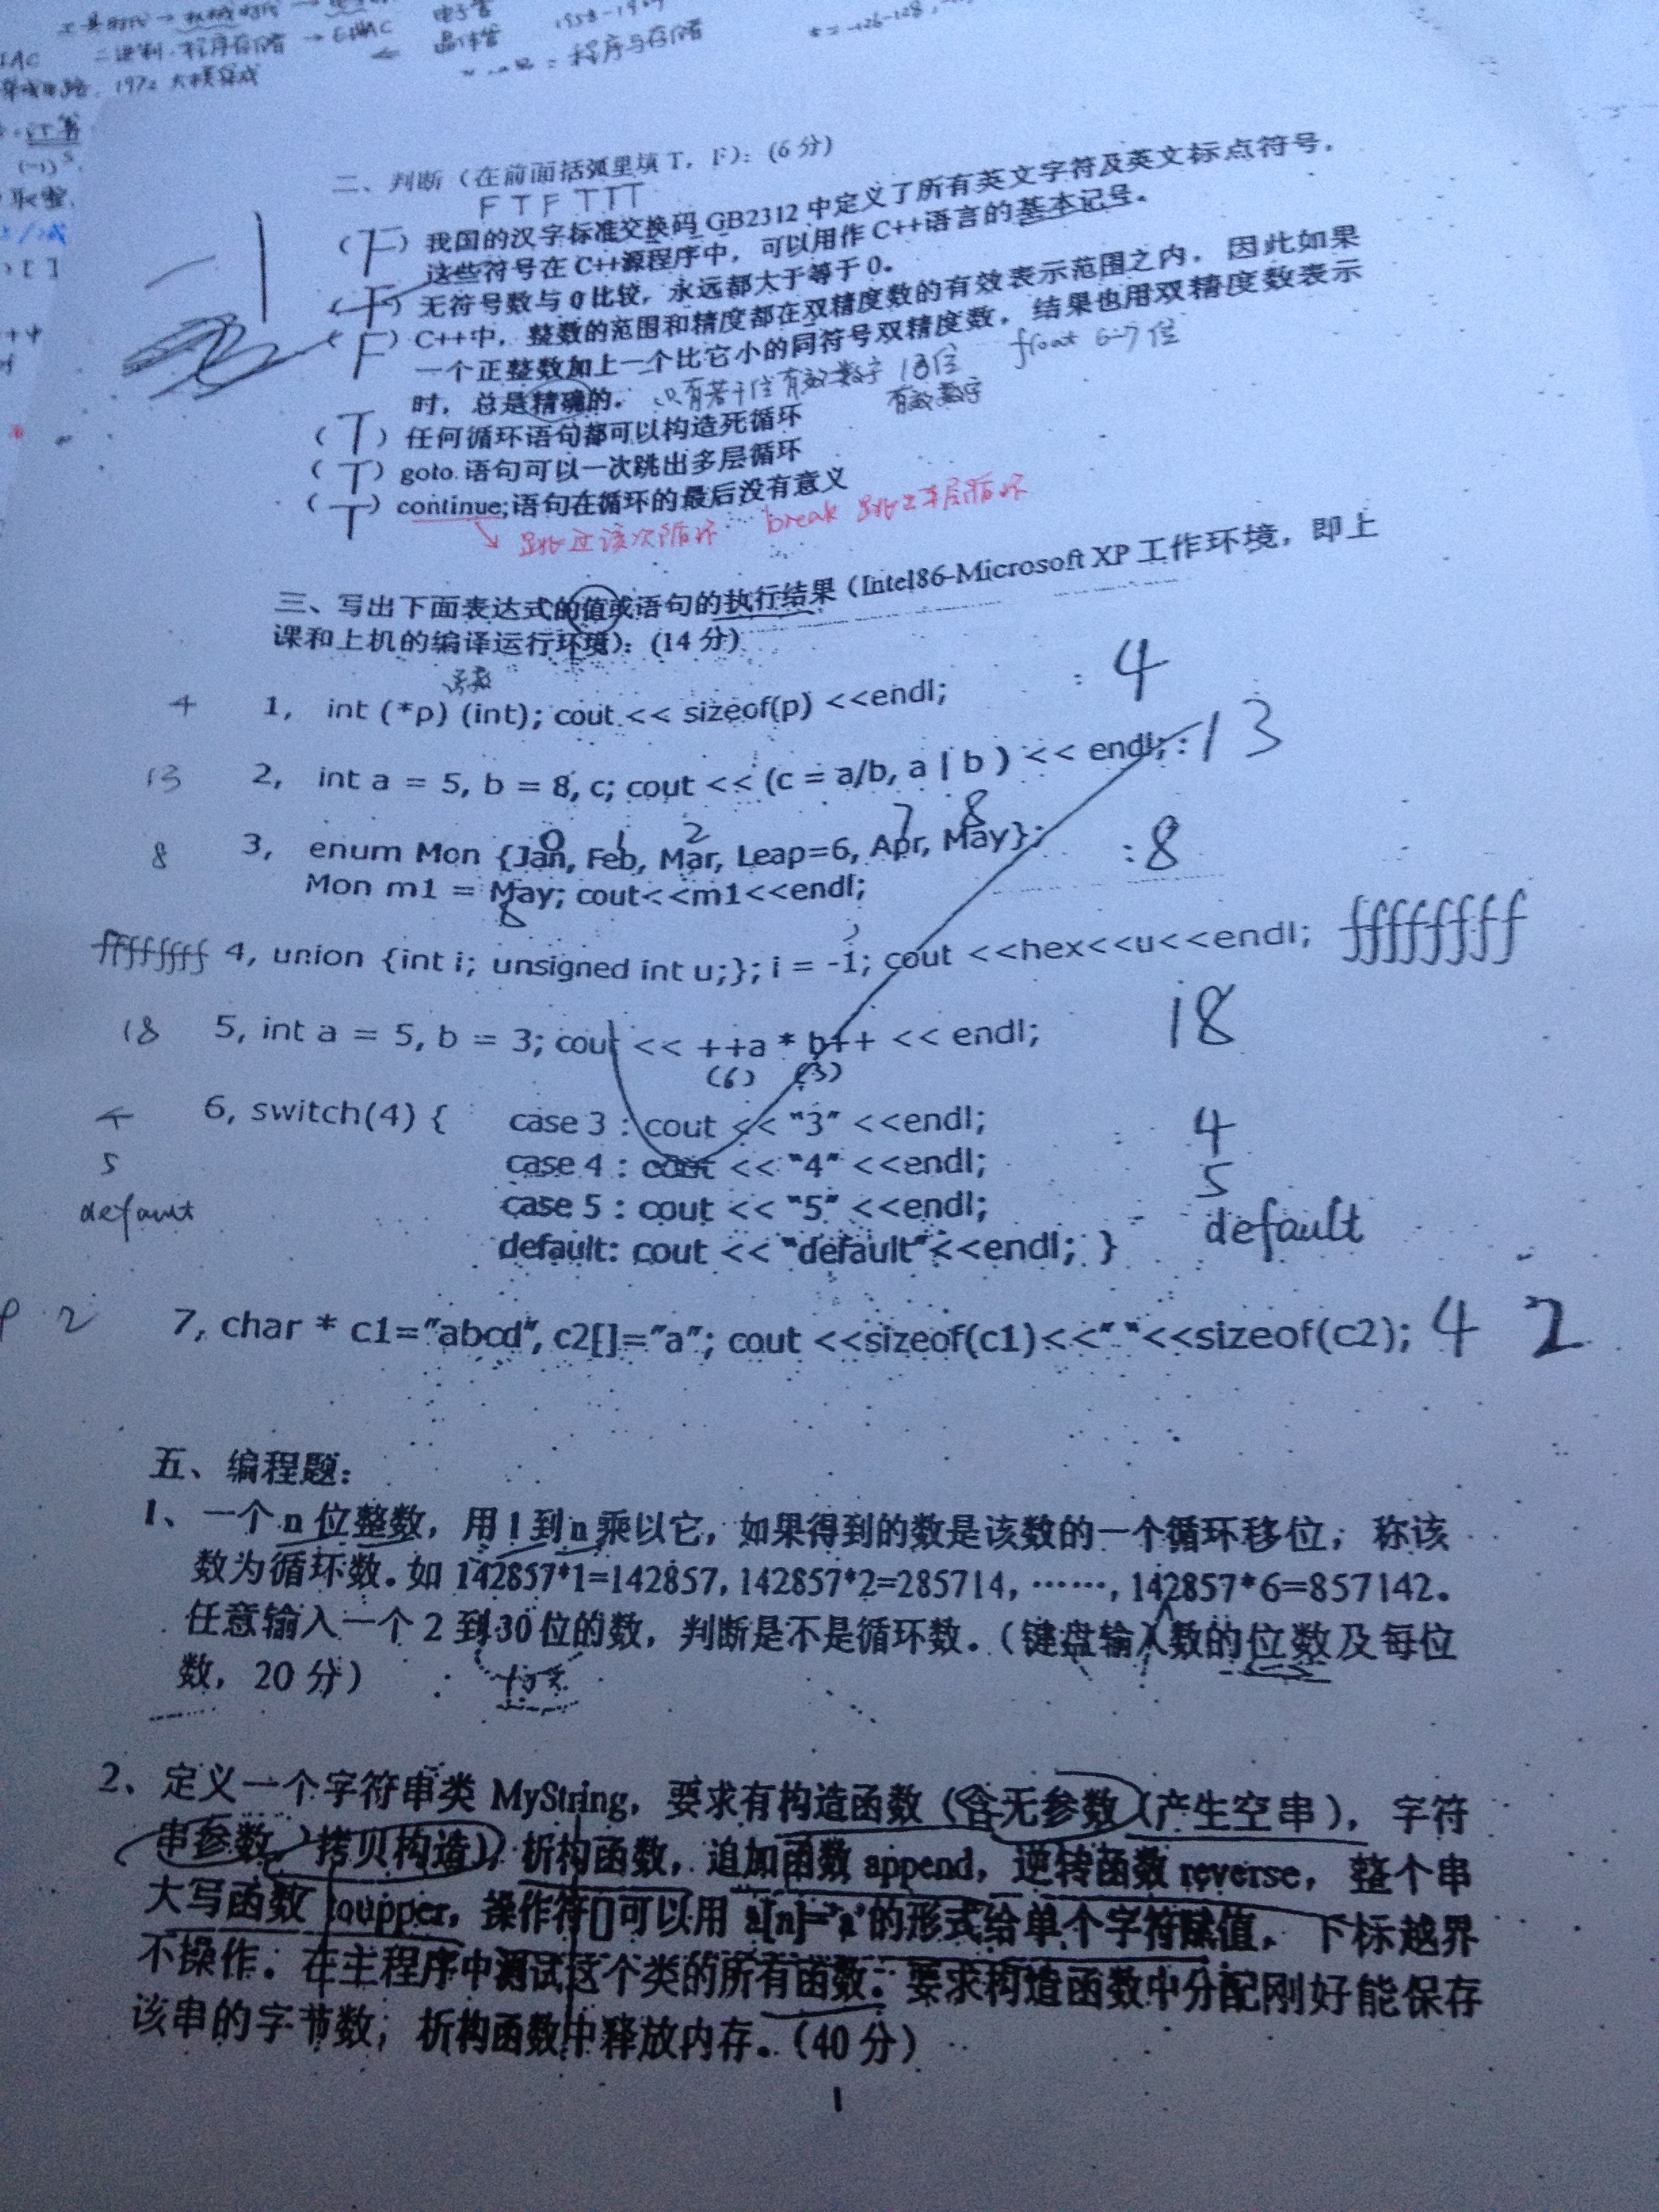 二进制.程序存储 → ENIAC
电子管
晶体管
1958-1964
= 程序与存储
1970 大规模集成
计算
取整
二、判断（在前面括弧里填 T，F）：（6 分）
F T F T T T
（F）我国的汉字标准交换码 GB2312 中定义了所有英文字符及英文标点符号，
这些符号在 C++源程序中，可以用作 C++语言的基本记号。
（F）无符号数与 0 比较，永远都大于等于 0。
（F）C++中，整数的范围和精度都在双精度数的有效表示范围之内，因此如果
一个正整数加上一个比它小的同符号双精度数，结果也用双精度数表示
时，总是精确的。 只有若干位有效数字 13位 float 6-7位
有效数字
（T）任何循环语句都可以构造死循环
（T）goto 语句可以一次跳出多层循环
（T）continue;语句在循环的最后没有意义
跳过该次循环 break 跳出本层循环
三、写出下面表达式的值或语句的执行结果（Intel86-Microsoft XP 工作环境，即上
课和上机的编译运行环境）：（14 分）
4 1, int (*p) (int); cout << sizeof(p) <<endl; : 4
13 2, int a = 5, b = 8, c; cout << (c = a/b, a | b ) << endl; : 13
0 1 2 7 8
8 3, enum Mon {Jan, Feb, Mar, Leap=6, Apr, May}; : 8
Mon m1 = May; cout<<m1<<endl;
8
ffffffff 4, union {int i; unsigned int u;}; i = -1; cout <<hex<<u<<endl; ffffffff
18 5, int a = 5, b = 3; cout << ++a * b++ << endl; 18
(6) (3)
4 6, switch(4) { case 3 : cout << "3" <<endl; 4
5 case 4 : cout << "4" <<endl; 5
default case 5 : cout << "5" <<endl; default
default: cout << "default"<<endl; }
2 7, char * c1="abcd", c2[]="a"; cout <<sizeof(c1)<<" "<<sizeof(c2); 4 2
五、编程题：
1、一个 n 位整数，用 1 到 n 乘以它，如果得到的数是该数的一个循环移位，称该
数为循环数。如 142857*1=142857, 142857*2=285714, ……, 142857*6=857142。
任意输入一个 2 到 30 位的数，判断是不是循环数。（键盘输入数的位数及每位
数，20 分）
2、定义一个字符串类 MyString，要求有构造函数（含无参数（产生空串），字符
串参数，拷贝构造）析构函数，追加函数 append，逆转函数 reverse，整个串
大写函数 toupper，操作符[]可以用 a[n]='a'的形式给单个字符赋值，下标越界
不操作。在主程序中测试这个类的所有函数。要求构造函数中分配刚好能保存
该串的字节数，析构函数中释放内存。（40 分）
1